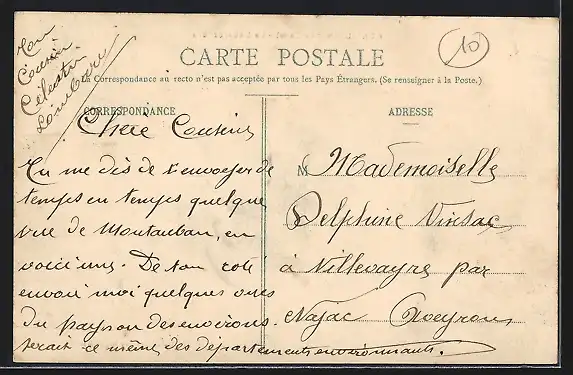 Ton
Cousin
Célestin
10
CARTE POSTALE
La Correspondance au recto n'est pas acceptée par tous les Pays Étrangers. (Se renseigner à la Poste.)
CORRESPONDANCE
Chère Cousine
Tu me dis de t'envoyer de
temps en temps quelque
vue de Montauban, en
voici une. De ton coté
envoi moi quelques vues
du pays ou des environs.
serait ce même des départements environnants.
ADRESSE
M Mademoiselle
Delphine Vinsac
à Villevayre par
Najac Aveyron